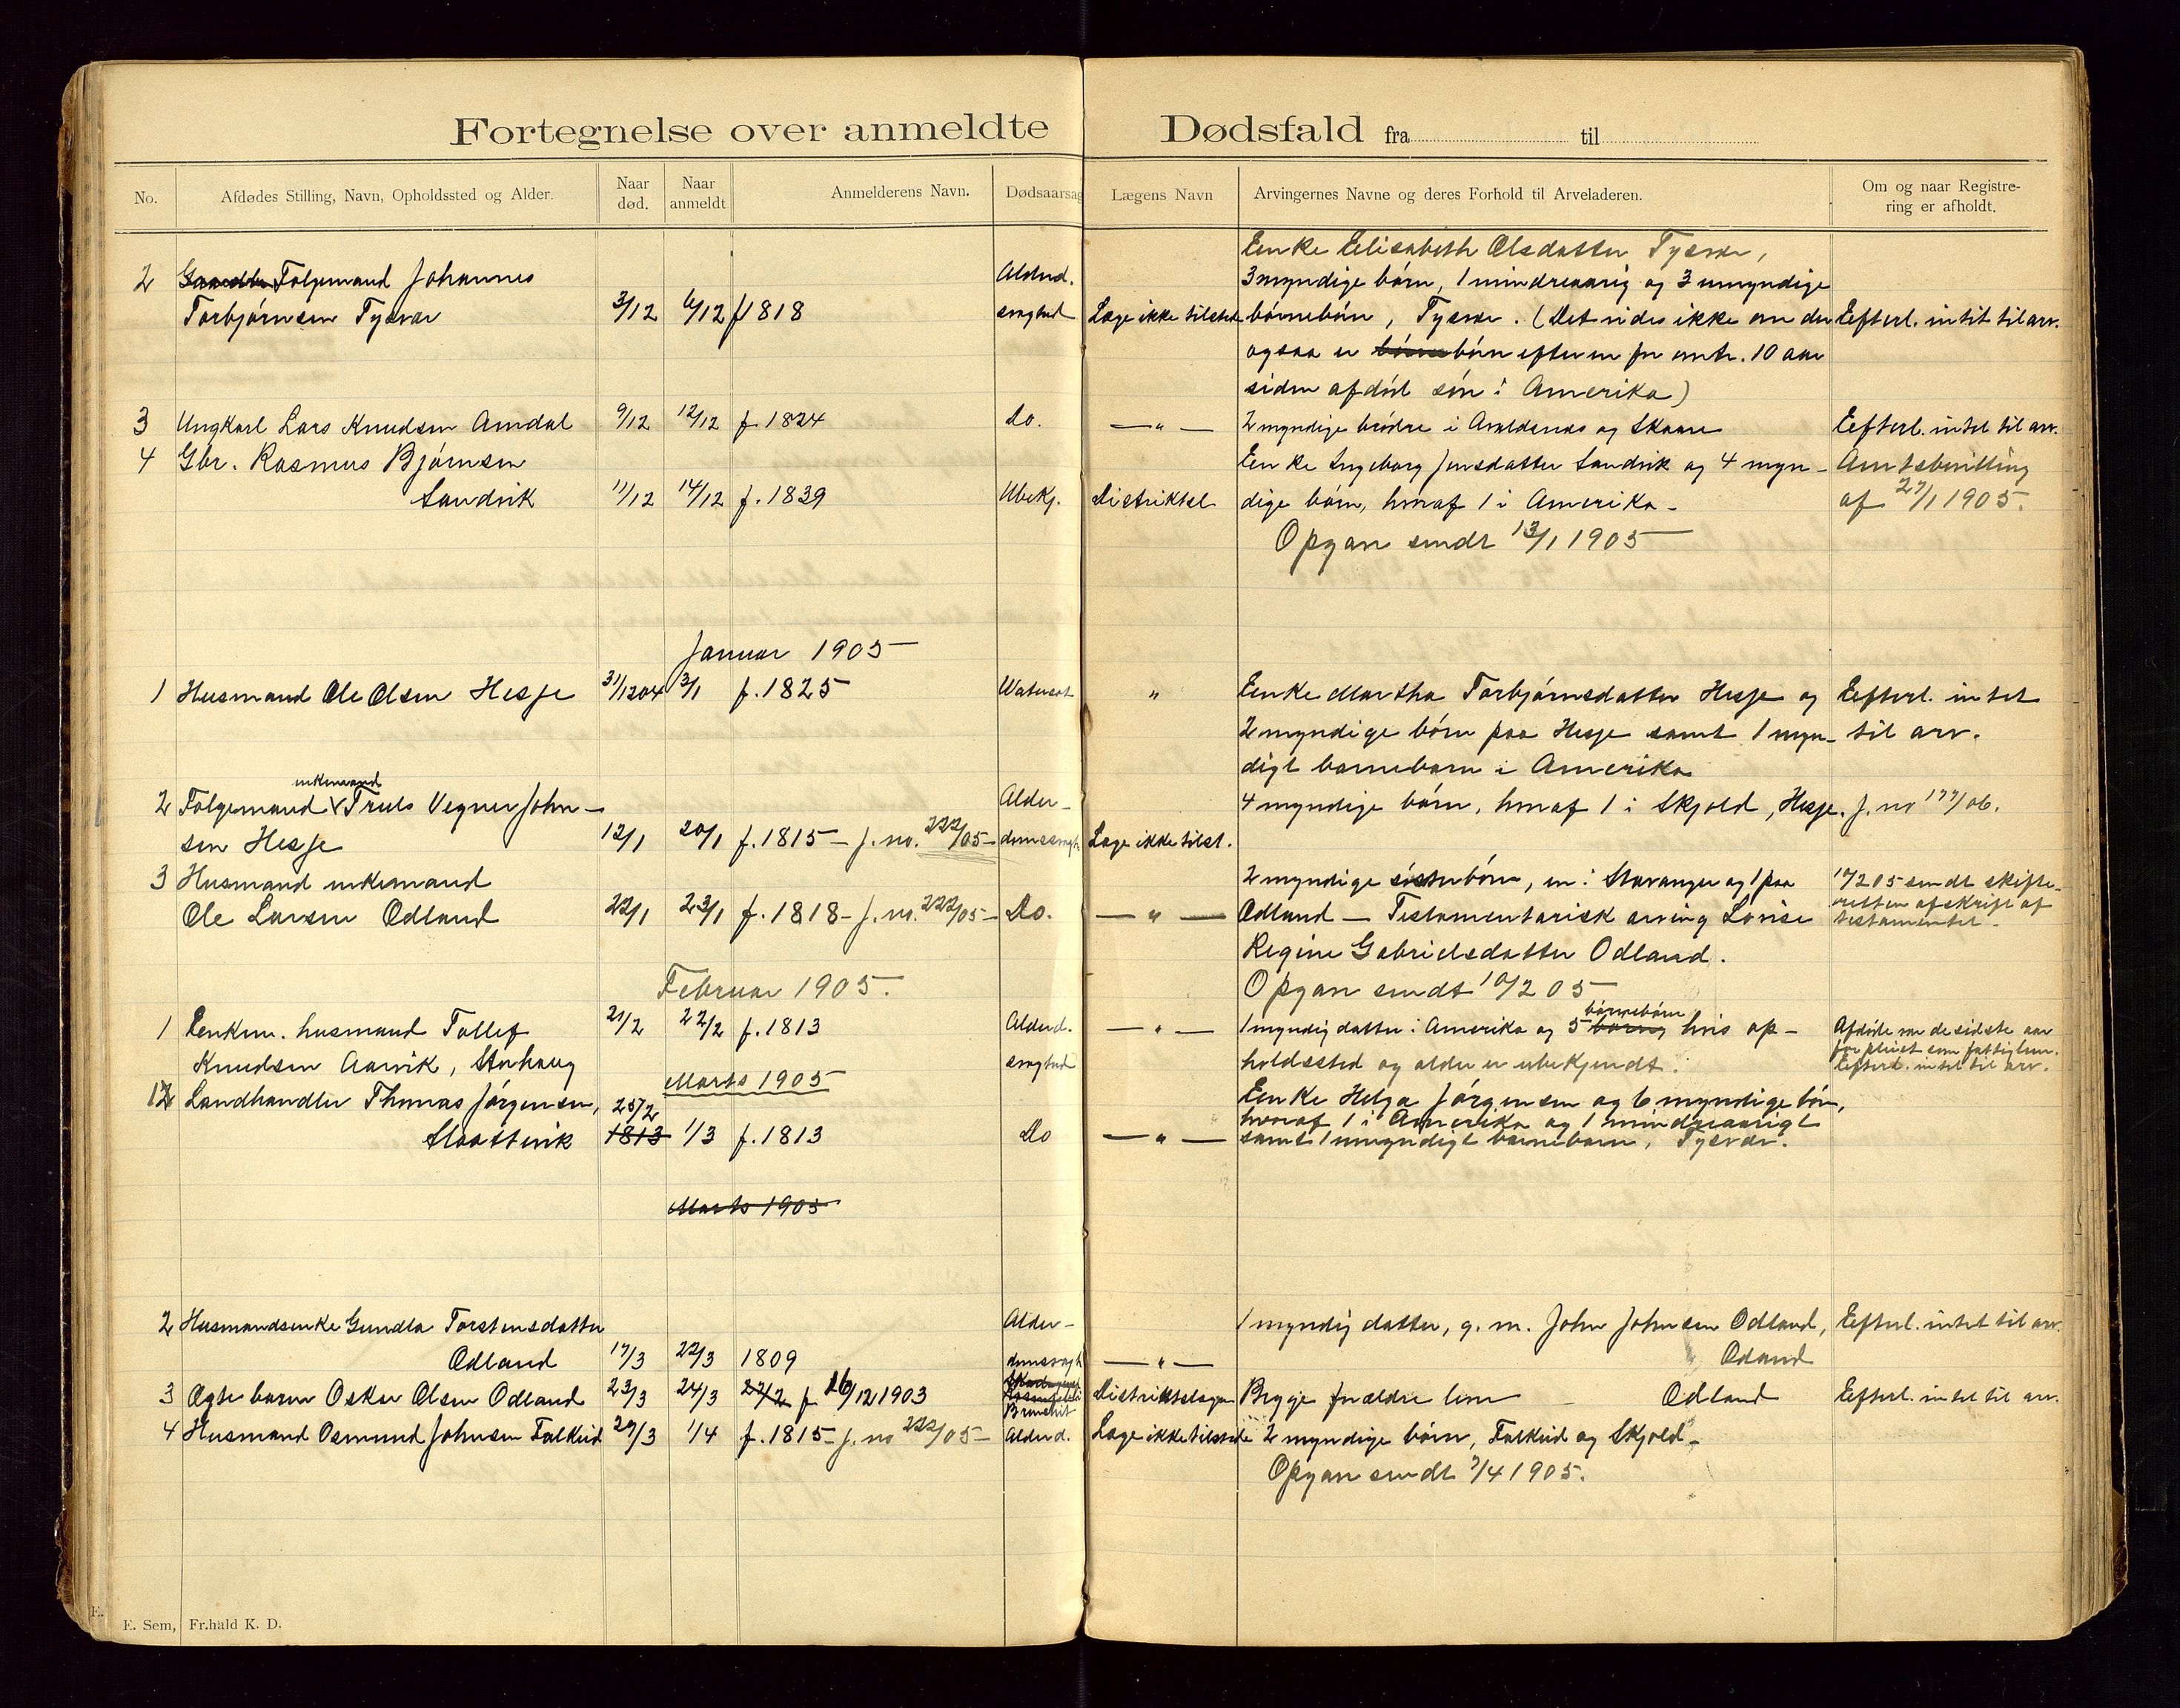 Fortegnelse over anmeldte Dødsfald fra til
No. Afdødes Stilling, Navn, Opholdssted og Alder. Naar død. Naar anmeldt Anmelderens Navn. Dødsaarsag Lægens Navn Arvingernes Navne og deres Forhold til Arveladeren. Om og naar Registrering er afholdt.
Enke Elisabeth Olsdatter Tysvær,
2 Folgemand Johannes Alderd. 3 myndige børn, 1 mindreaarig og 3 umyndige
Torbjørnsen Tysvær 3/12 6/12 f 1818 svaghed Læge ikke tilstede børnebørn, Tysvær. (Det vides ikke om der Efterl. intet til arv.
ogsaa er børnebørn efter en for omtr. 10 aar
siden afdød søn i Amerika)
3 Ungkarl Lars Knudsen Amdal 9/12 12/12 f. 1824 Do. — " — 2 myndige brødre i Avaldsnes og Skaare Efterl. intet til arv.
4 Gbr. Rasmus Bjørnsen Enke Ingeborg Jensdatter Sandvik og 4 myn- Amtsbevilling
Sandvik 11/12 14/12 f. 1839 Ubekj. Distriktsl. dige børn, hvoraf 1 i Amerika - af 27/1 1905.
Opgave sendt 13/1 1905
Januar 1905
1 Husmand Ole Olsen Hesje 31/12 04 3/1 f. 1825 Watersot " Enke Martha Torbjørnsdatter Hesje og Efterl. intet
2 myndige børn paa Hesje samt 1 myn- til arv.
digt barnebarn i Amerika
enkemand
2 Folgemand Truls Vegner John- Alder- 4 myndige børn, hvoraf 1 i Skjold, Hesje. J. no 177/06.
sen Hesje 12/1 20/1 f. 1815 - J. no. 222/05 - domssvagh. Læge ikke tilst.
3 Husmand enkemand 2 myndige søsterbørn, en i Stavanger og 1 paa 10/2 05 sendt skifte-
Ole Larsen Odland 22/1 23/1 f. 1818 - J. no. 222/05 - Do. — " — Odland — Testamentarisk arving Lovise retten afskrift af
testamentet.
Regine Gabrielsdatter Odland.
Februar 1905. Opgave sendt 10/2 05
børnebørn
1 Enkem. husmand Tollef 21/2 22/2 f. 1813 Alderd. — " — 1 myndig datter i Amerika og 5 hvis op- Afdøde var de sidste aar
Knudsen Aarvik, Storhaug svaghed holdssted og alder er ubekjendt. forpleiet som fattiglem.
Efterl. intet til arv.
Marts 1905
1 Landhandler Thomas Jørgensen, 25/2 Enke Helga Jørgensen og 6 myndige børn,
hvoraf 1 i Amerika og 1 mindreaarigt
Slaattevik 1813 1/3 f. 1813 Do — " — samt 1 umyndigt barnebarn, Tysvær.
Marts 1905
2 Husmandsenke Gundla Torstensdatter Alder- 1 myndig datter, g. m. John Johnsen Odland, Efterl. intet til arv.
Odland 17/3 22/3 1809 domssvagh. — " — Odland
3 Ægtebarn Oskar Olsen Odland 23/3 24/3 22/2 f 26/12 1903 Distriktslægen Begge forældre leve - Odland Efterl. intet til arv.
4 Husmand Osmund Johnsen Falkeid 29/3 1/4 f. 1815 - J. no 222/05 - Alderd. Læge ikke tilstede 2 myndige børn, Falkeid og Skjold -
Opgave sendt 3/4 1905.
E. Sem, Fr.hald K. D.